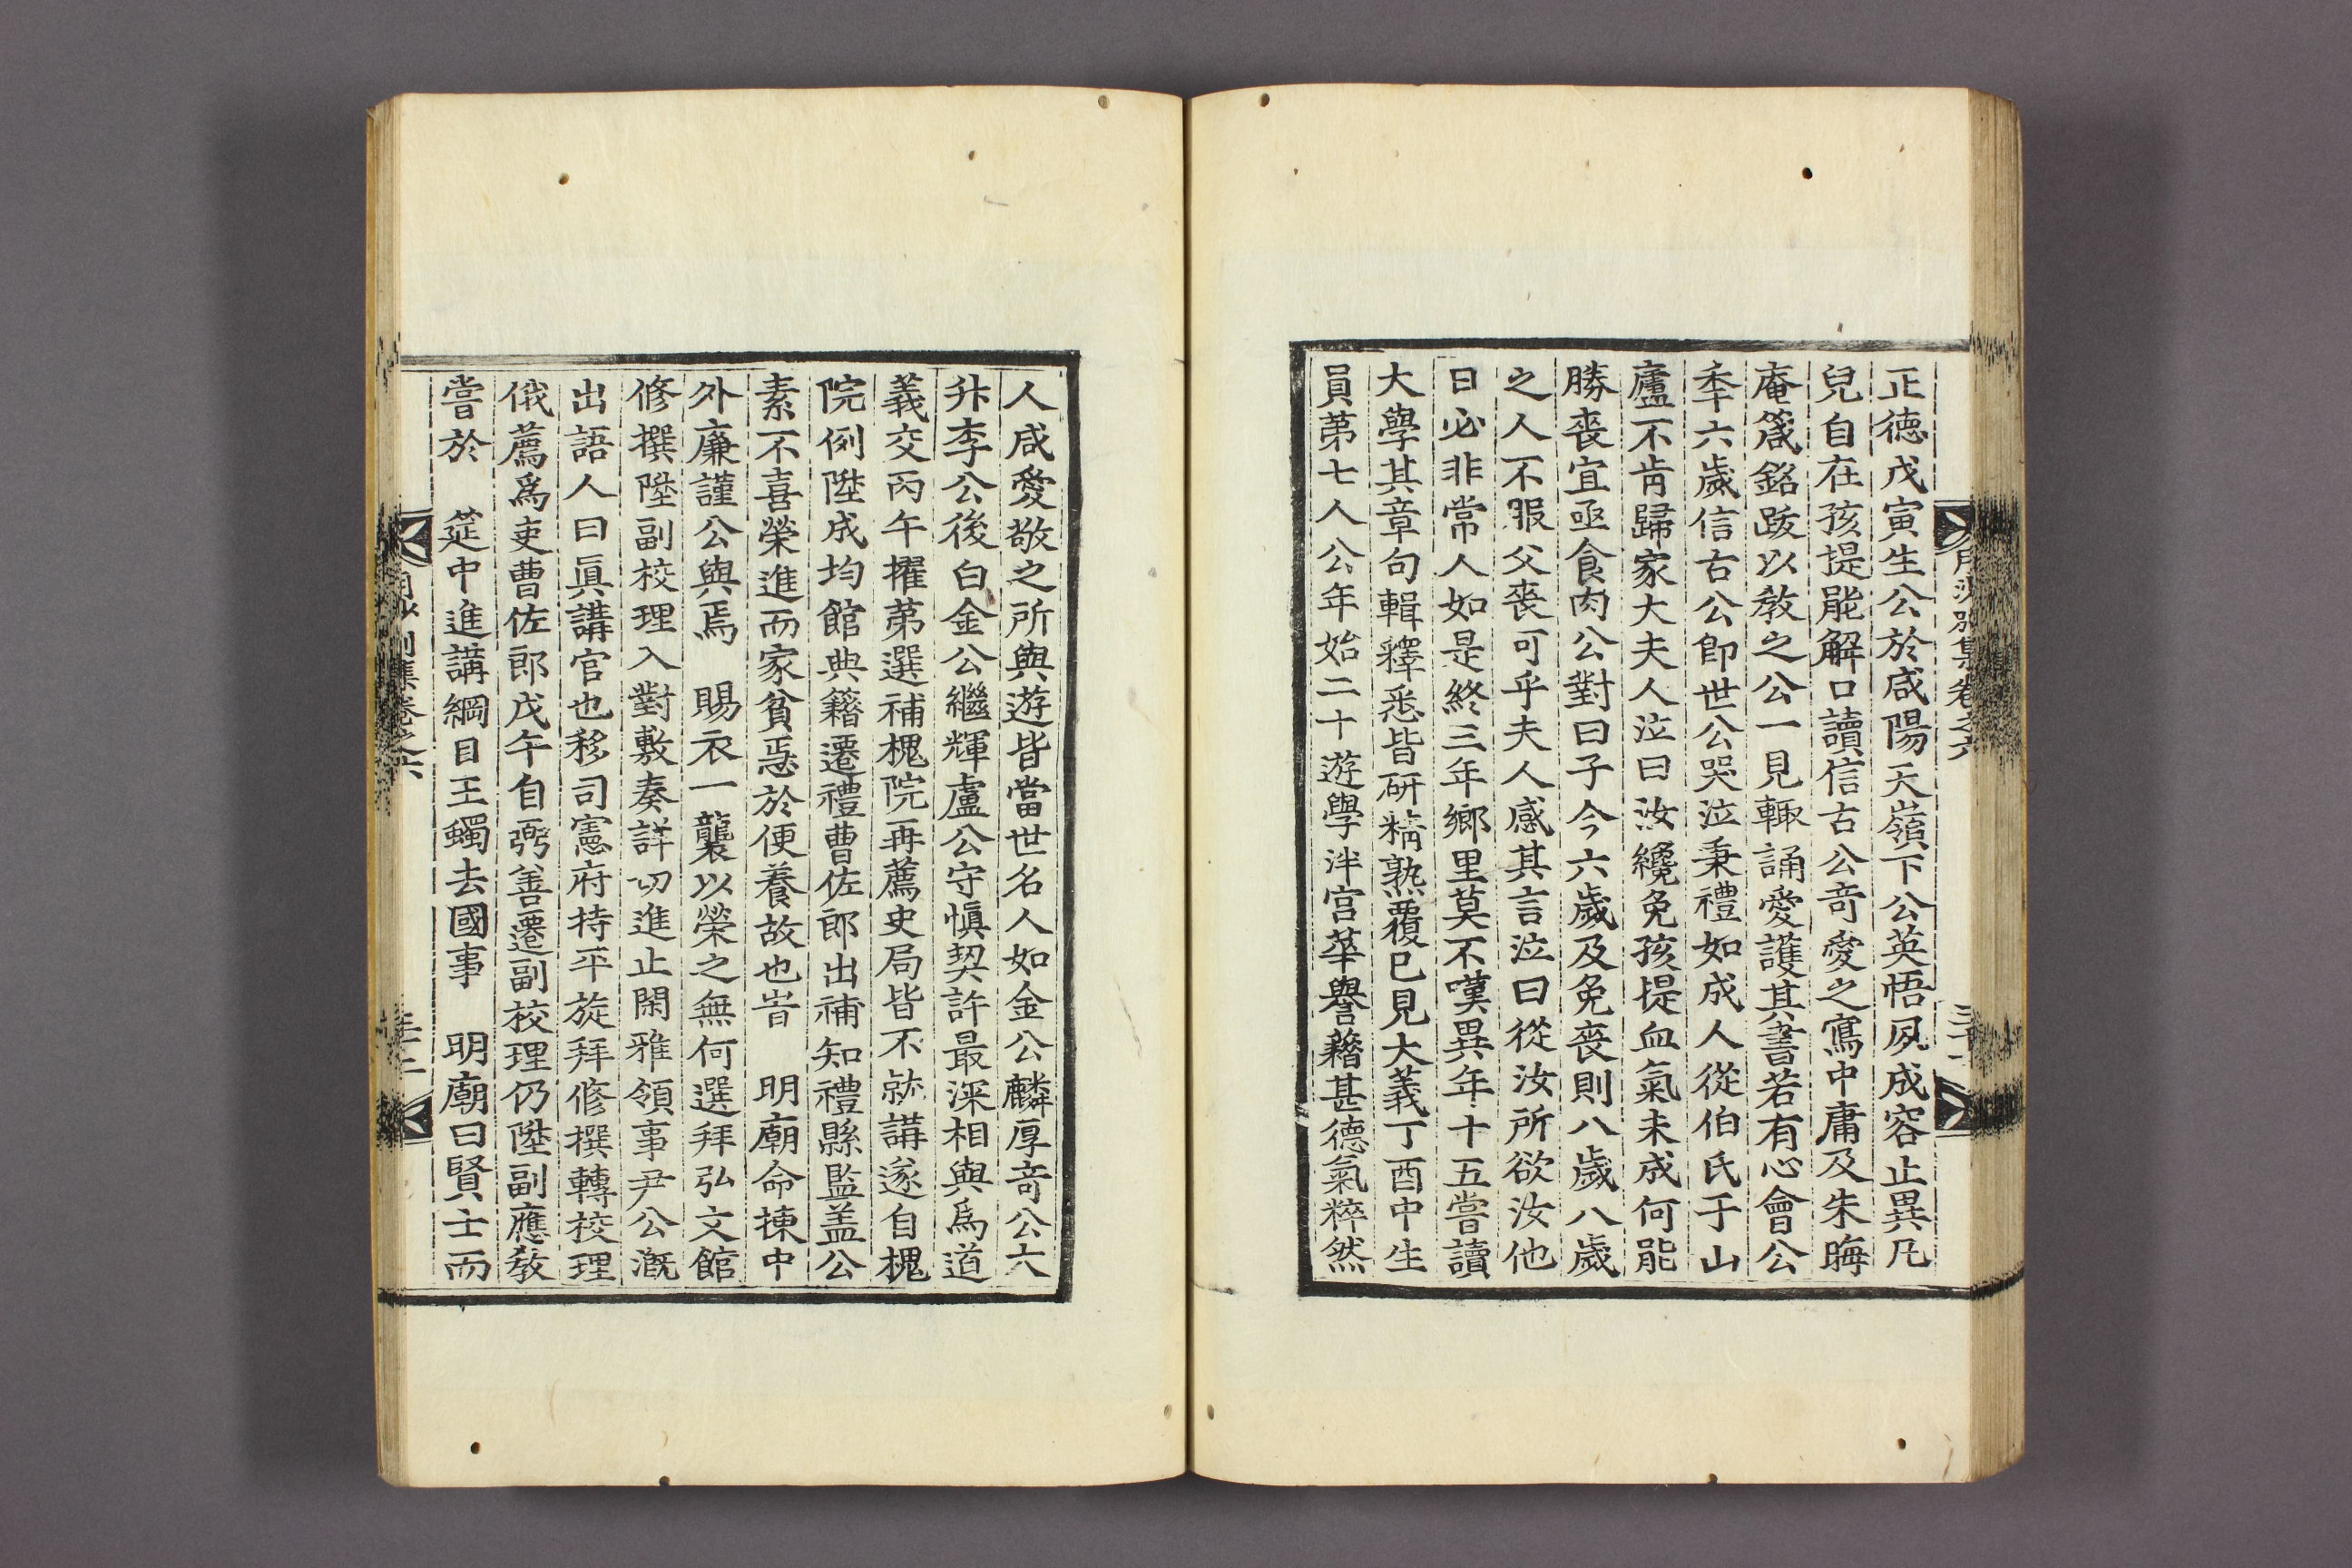 正德戊寅生公於咸陽天嶺下公英悟夙成容止異凡
兒自在孩提能解口讀信古公奇愛之寫中庸及朱晦
庵箴銘跋以敎之公一見輒誦愛護其書若有心會公
季六歲信古公卽世公哭泣秉禮如成人從伯氏于山
廬不肯歸家大夫人泣曰汝纔免孩提血氣未成何能
勝喪宜亟食肉公對曰子今六歲及免喪則八歲八歲
之人不服父喪可乎夫人感其言泣曰從汝所欲汝他
日必非常人如是終三年鄕里莫不嘆異年十五嘗讀
大學其章句輯釋悉皆硏精熟覆已見大義丁酉中生
員第七人公年始二十遊學泮宮華譽藉甚德氣粹然
人咸愛敬之所與遊皆當世名人如金公麟厚奇公六
升李公後白金公繼輝盧公守愼契許最深相與爲道
義交丙午擢第選補槐院再薦史局皆不就講遂自槐
院例陞成均館典籍遷禮曹佐郞出補知禮縣監盖公
素不喜榮進而家貧急於便養故也旹 明廟命揀中
外廉謹公與焉 賜衣一襲以榮之無何選拜弘文館
修撰陞副校理入對敷奏詳切進止閑雅領事尹公漑
出語人曰眞講官也移司憲府持平旋拜修撰轉校理
俄薦爲吏曹佐郞戊午自弼善遷副校理仍陞副應敎
嘗於 筵中進講綱目王蠋去國事 明廟曰賢士而